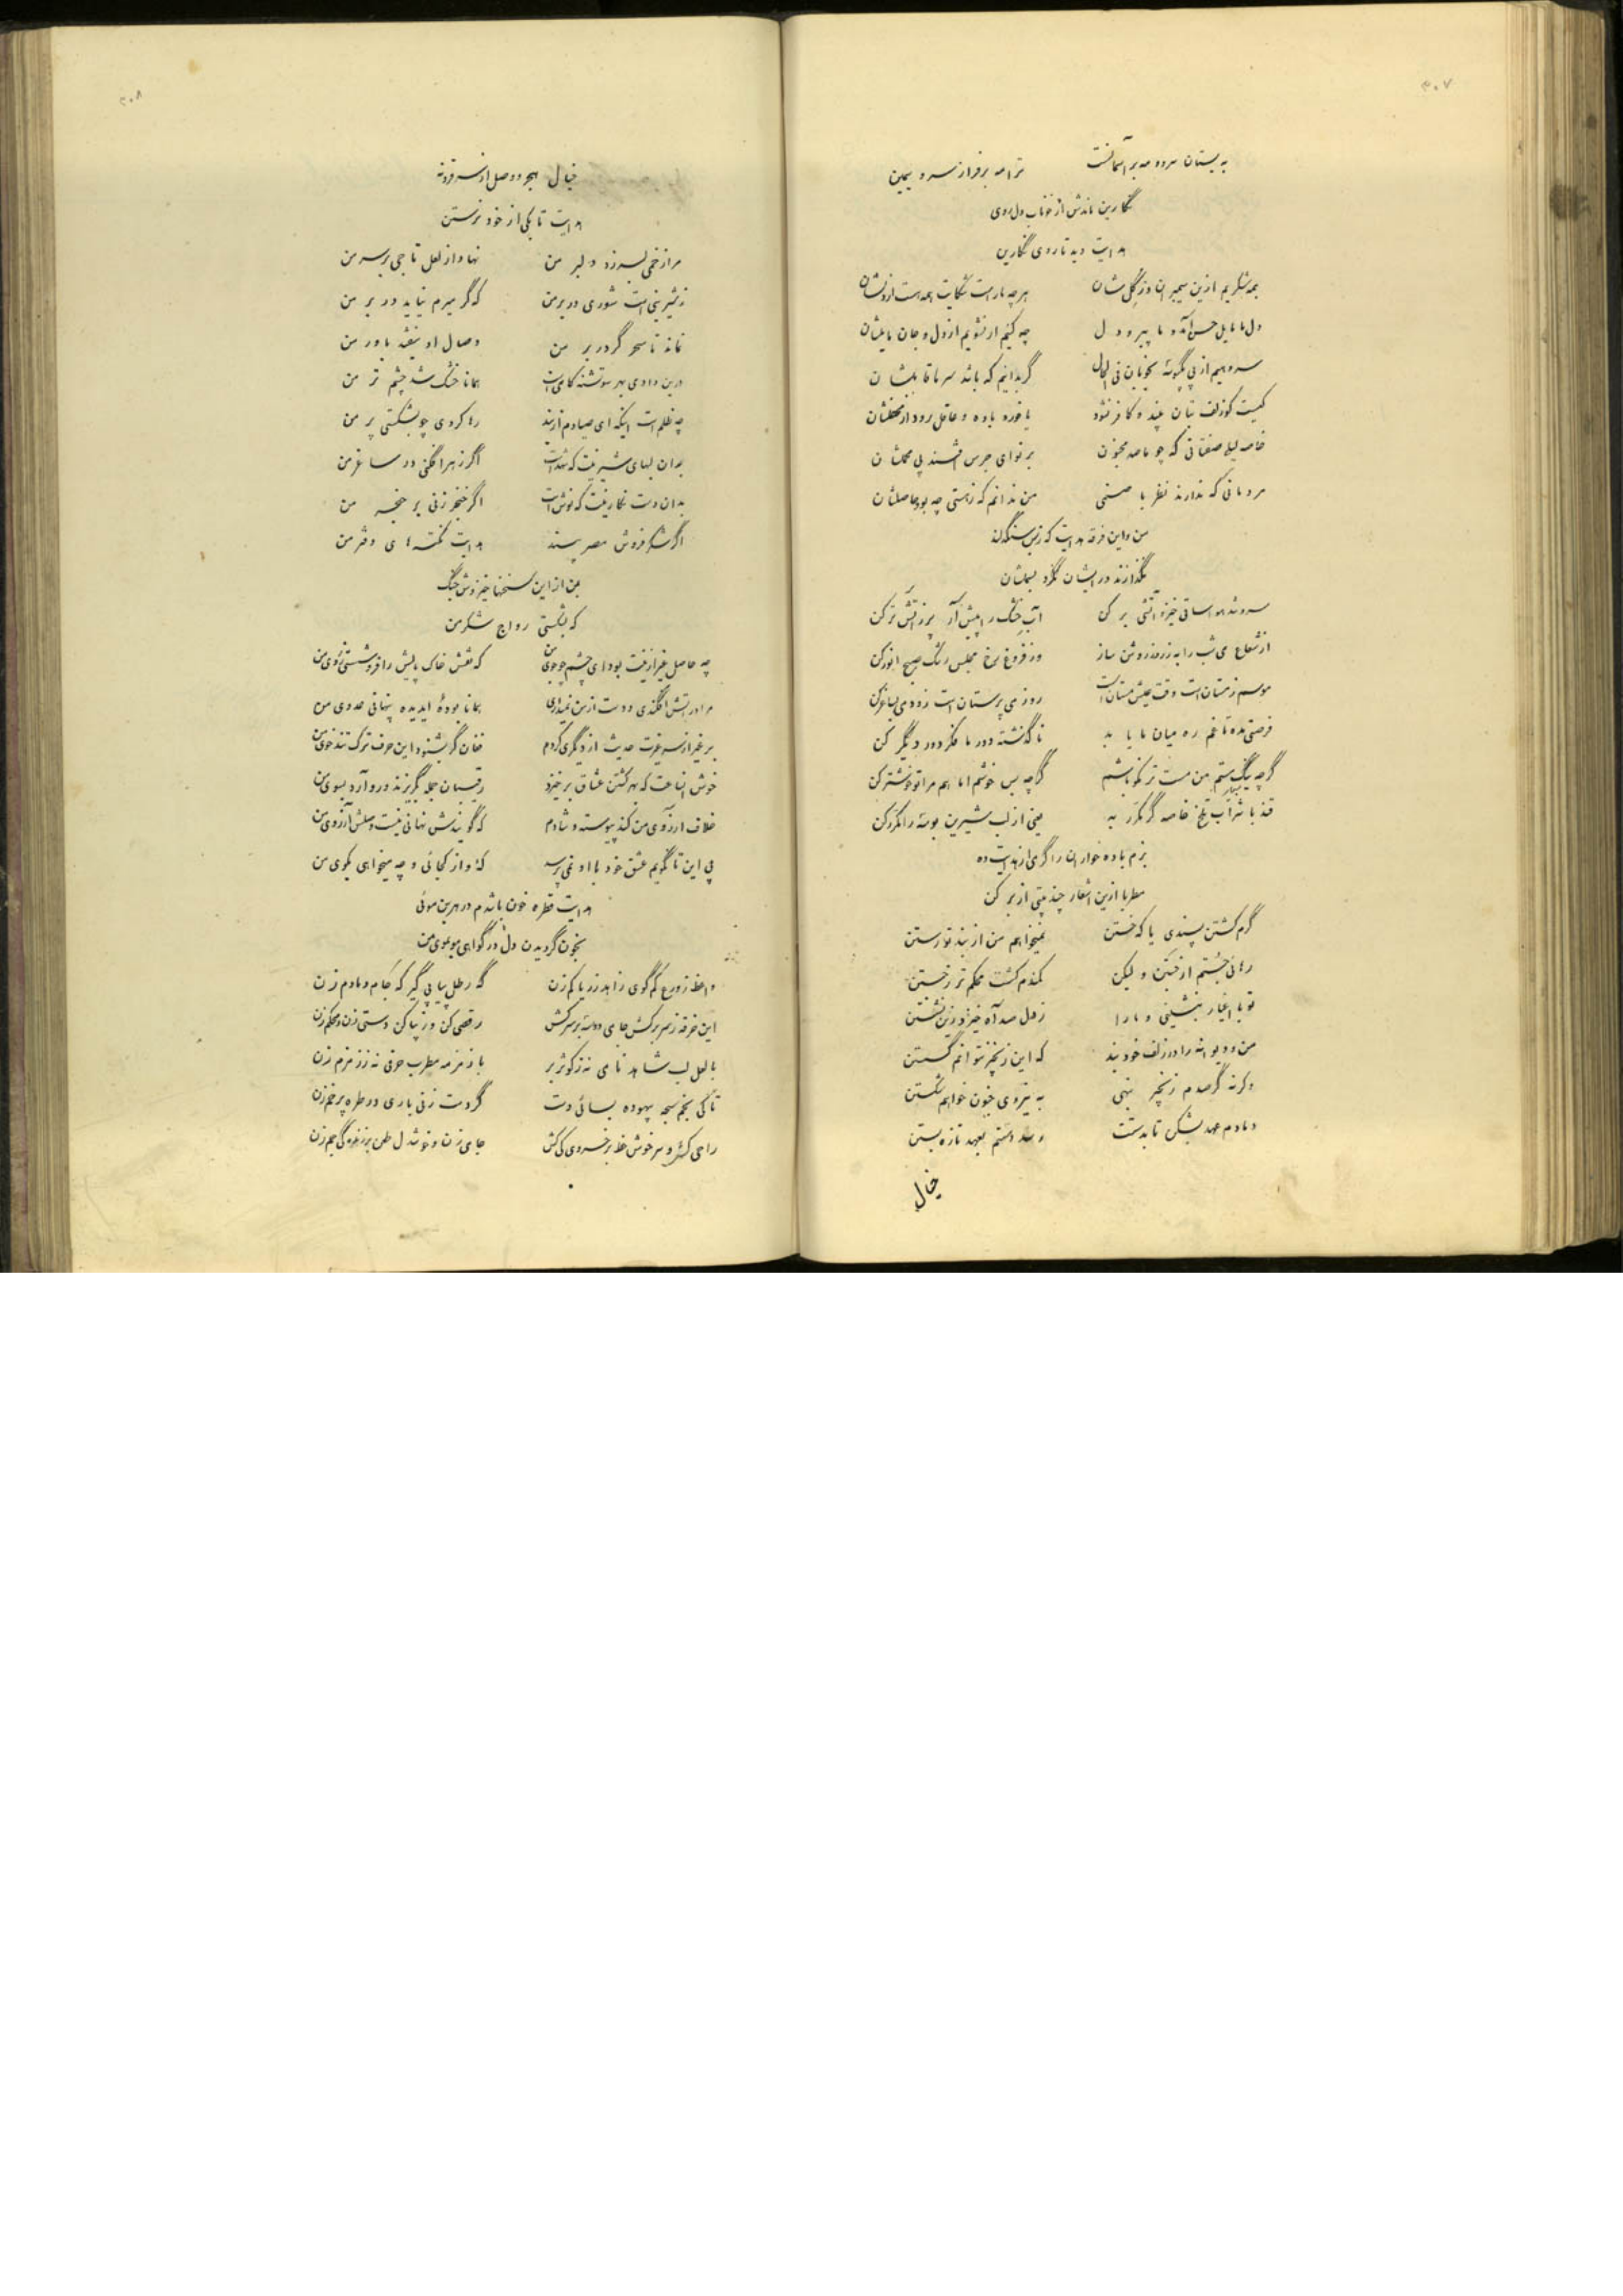 ۳۰۷
به بستان سرو و مه بر آسمانست ترا مه بر فراز سرو سیمین
نگارین ماندش از خوناب دل روی
هدایت دید تا روی نگارین
همه شکریم ازین سیمبران وز گل شان هر چه ما راست شکایت همه هست از دلشان
دل ما مایل حسن آمد و ما پیرو دل چه کنیم ار نشویم از دل و جان مایلشان
سر دهیم از پی یکبوسه بخوبان فی الحال گر بدانیم که باشد سر ما قابلشان
کیست کو زلف بتان بیند و کافر نشود یا خورد باده و عاقل رود از محفلشان
خاصه لیلی صفتانی که چو ما صد مجنون بر نوای جرس افتند پی محملشان
مردمانی که ندارند نظر با صنمی من ندانم که ز هستی چه بود حاصلشان
من و این فرقه هدایت که ز بس سنگدلند
نگذارند در ایشان نگرد بسملشان
سرد شد هوا ساقی خیز و آتشی بر کن آب خشک را پیش آر پر ز آتش تر کن
از شعاع می شب را به ز روز روشن ساز وز فروغ رخ مجلس رشک صبح انور کن
موسم زمستان است وقت عیش مستان است روز می پرستان است زود می بساغر کن
فرصتی مده تا غم ره میان ما یابد ناگذشته دور ما فکر دور دیگر کن
گرچه نیک سرمستم من مست تر نکو باشم گرچه بس خوشم اما هم مرا تو خوشتر کن
قند با شراب تلخ خاصه گر مکرر به یعنی از لب شیرین بوسه را مکرر کن
بزم باده خواران را گرمی از هدایت ده
مطربا ازین اشعار چند بیتی از بر کن
گرم کشتن پسندی یا که خستن نمیخواهم من از بند تو رستن
رهائی جستم از جستن و لیکن کمندم گشت محکم تر ز جستن
تو با اغیار بنشینی و ما را ز دل صد آه خیزد زین نشستن
من دیوانه را در زلف خود بند که این زنجیر نتوانم گسستن
وگرنه گر صدم زنجیر بنهی به نیروی جنون خواهم شکستن
دمادم عهد بشکن تا بدستت رسد دستم بعهد تازه بستن
خیال
۳۰۸
خیال هجر و وصل او
هدایت تا یکی از خود نرستن
مرا زخمی بسر زد دلبر من نهاد از لعل تاجی بر سر من
ز شیرینی است شوری در بر من که گر میرم نیاید در بر من
نماند تا سحر گر در بر من وصال او نیفتد باور من
درین وادی بهر سو تشنه کامی است همانا خشک شد چشم تر من
چه ظلم است اینکه ای صیادم از بند رها کردی چو بشکستی پر من
بدان لبهای شیرینت که شهد است اگر زهر افکنی در ساغر من
بدان دست نگارینت که نوش است اگر خنجر زنی بر حنجر من
اگر شکر فروش مصر بیند هدایت نکته های دفتر من
بمن از این سخنها خیزدش جنگ
که بشکستی رواج شکر من
چه حاصل غیر ازینت بود ای چشم چو جوی من که نقش خاک پایش را فرو شستی ز روی من
مرا در آتش افکندی و دست از من نمیداری همانا بودۀ ای دیده پنهانی عدوی من
بر غیر از سر غیرت حدیث از دیگری کردم فغان گر بشنود این حرف ترک تندخوی من
خوش آنساعت که بهر کشتن عشاق برخیزد رقیبان جمله بگریزند و رو آرد بسوی من
خلاف آرزوی من کند پیوسته و شادم که گویندش نهانی نیست وصلش آرزوی من
پی این تا نگویم عشق خود با او نمی پرسد که‌ء و از کجائی و چه میخواهی بکوی من
هدایت قطره خون باشدم در هر بن موئی
بخون گردیدن دل در گواهی مو بموی من
واعظ ز ورع کم گوی زاهد ز ریا کم زن گه رطل پیاپی گیر گه جام دمادم زن
این خرقه ز سر برکش جامی دو سه بر سر کش رقصی کن و ز پا کن دستی زن و محکم زن
با لعل لب شاهد نامی نه ز کوثر بر با زمزمه مطرب حرفی نه ز زمزم زن
تا کی بخم سبحه بیهوده بسائی دست گر دست زنی باری در طره پر خم زن